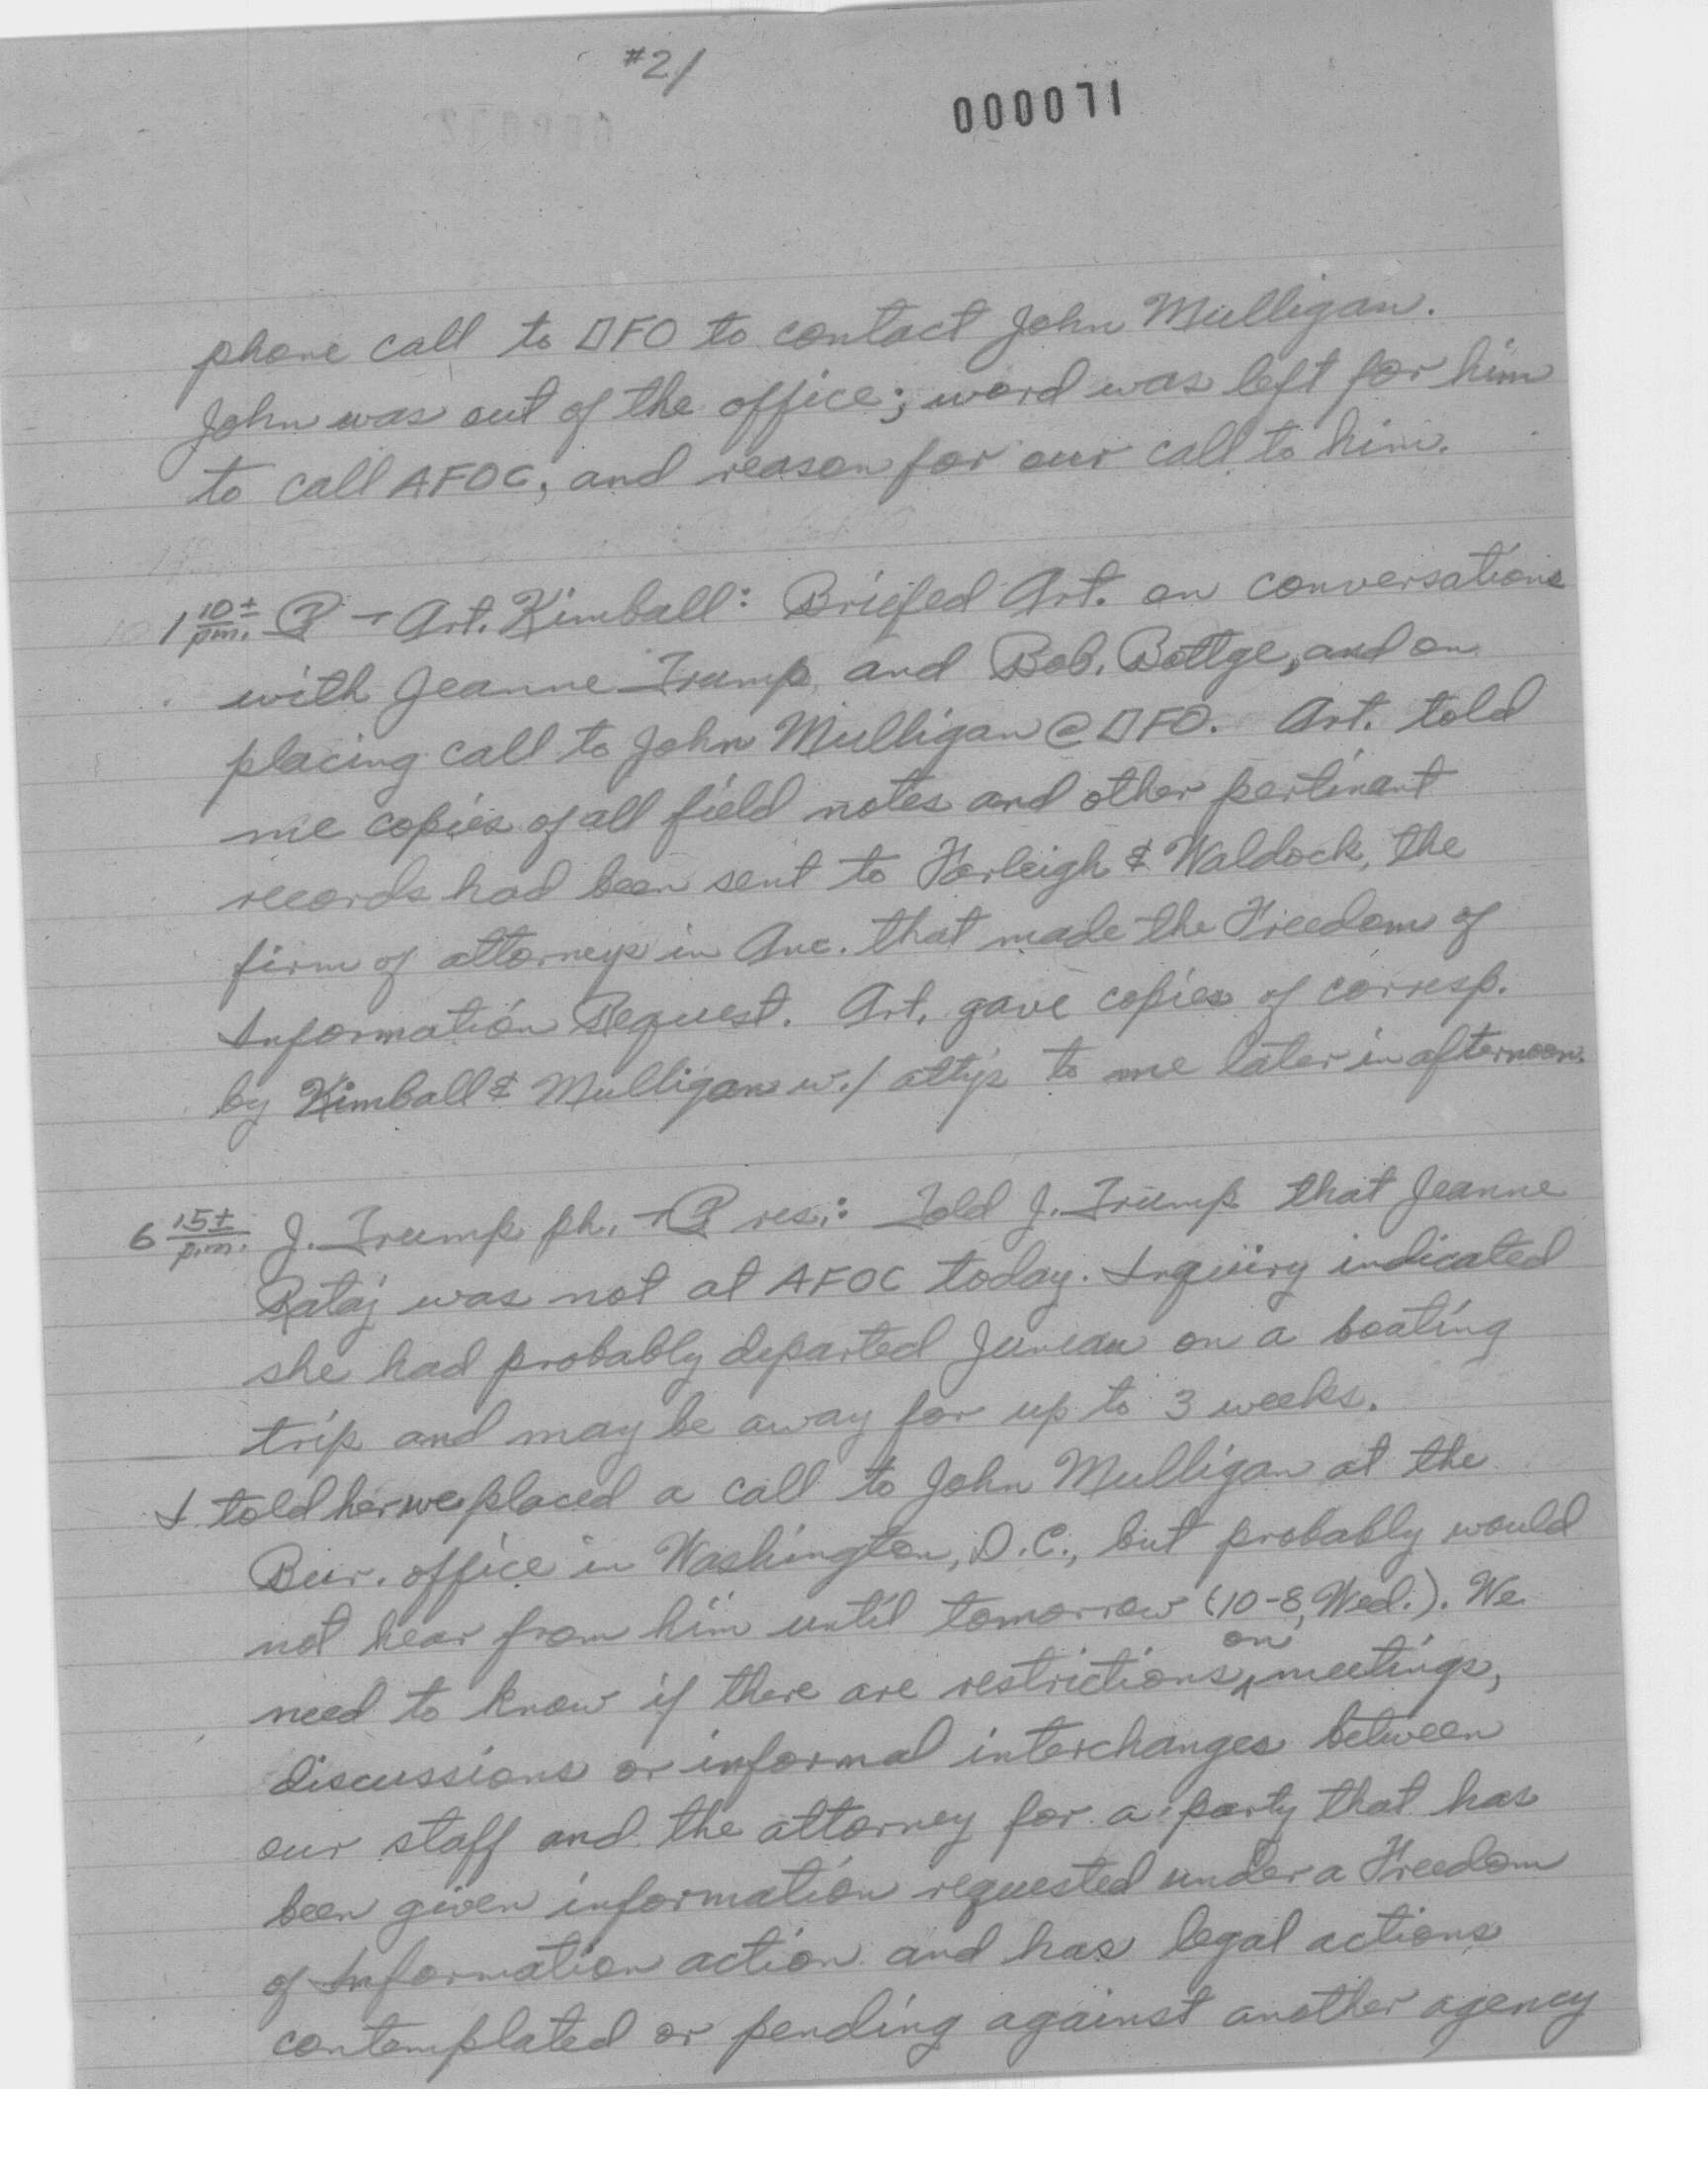 #21
000071
phone call to DFO to contact John Mulligan.
John was out of the office; word was left for him
to call AFOC, and reason for our call to him.
1 10± pm. P → Art. Kimball: Briefed Art. on conversations
with Jeanne Trump, and Bob. Bottge, and on
placing call to John Mulligan @ DFO. Art. told
me copies of all field notes and other pertinant
records had been sent to Harleigh & Waldock, the
firm of attorneys in Anc. that made the Freedom of
Information Request. Art. gave copies of corresp.
by Kimball & Mulligan w./ att'ys to me later in afternoon.
6 15± p.m. J. Trump ph. → P res.: Told J. Trump that Jeanne
Rataj was not at AFOC today. Inquiry indicated
she had probably departed Juneau on a boating
trip and may be away for up to 3 weeks.
I told her we placed a call to John Mulligan at the
Bur. office in Washington, D.C., but probably would
not hear from him until tomorrow (10-8, Wed.). We
need to know if there are restrictions on meetings,
discussions or informal interchanges between
our staff and the attorney for a party that has
been given information requested under a Freedom
of Information action and has legal actions
contemplated or pending against another agency